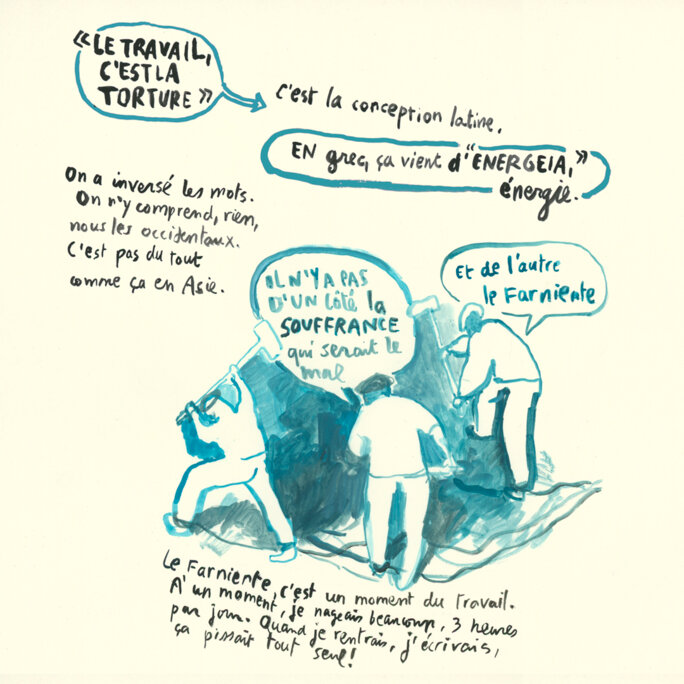 « LE TRAVAIL,
C'EST LA
TORTURE »
C'est la conception latine.
EN grec, ça vient d'"ENERGEIA,"
énergie.
On a inversé les mots.
On n'y comprend, rien,
nous les occidentaux.
C'est pas du tout
comme ça en Asie.
IL N'Y A PAS
D'UN Côté la
SOUFFRANCE
qui serait le
mal
Et de l'autre
le Farniente
Le Farniente, c'est un moment du travail.
A' un moment, je nageais beaucoup, 3 heures
par jour. Quand je rentrais, j'écrivais,
ça pissait tout seul!